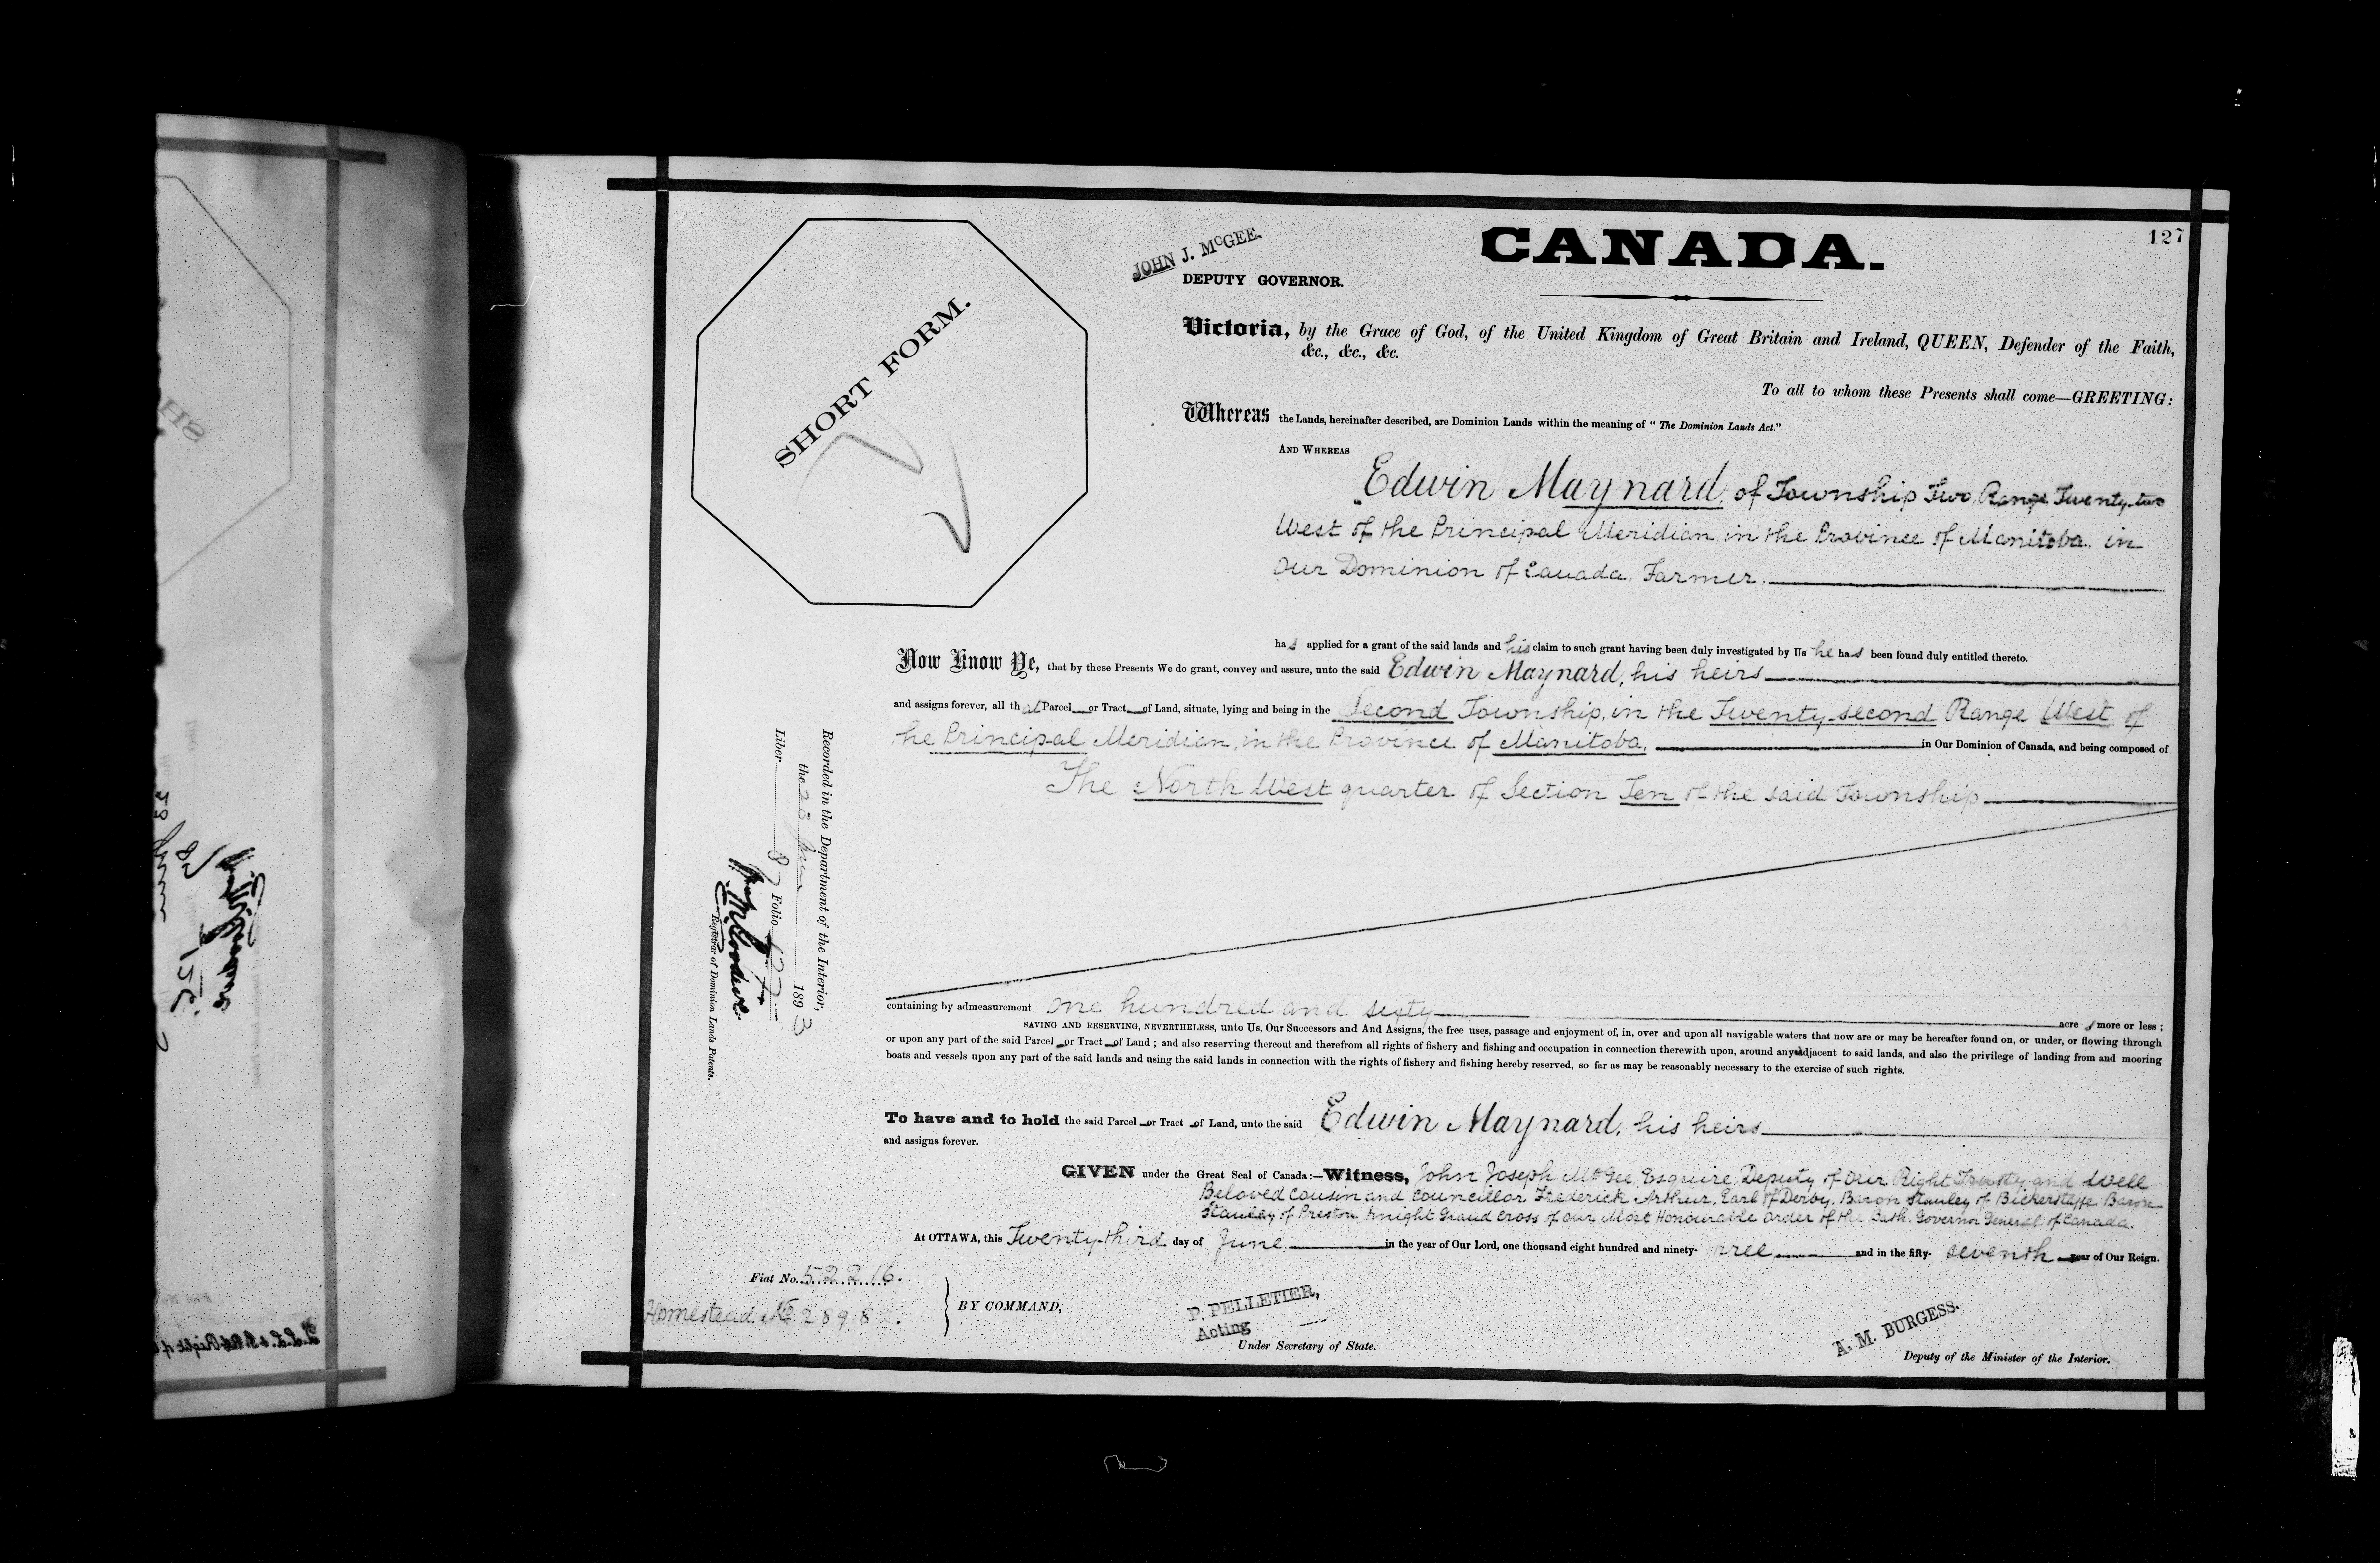 127
CANADA.
JOHN J. McGEE.
DEPUTY GOVERNOR.
SHORT FORM.
Victoria, by the Grace of God, of the United Kingdom of Great Britain and Ireland, QUEEN, Defender of the Faith,
&c., &c., &c.
To all to whom these Presents shall come—GREETING:
Whereas the Lands, hereinafter described, are Dominion Lands within the meaning of "The Dominion Lands Act."
AND WHEREAS
Edwin Maynard, of Township Two, Range Twenty-two
West of the Principal Meridian, in the Province of Manitoba, in
Our Dominion of Canada. Farmer.
has applied for a grant of the said lands and his claim to such grant having been duly investigated by Us he has been found duly entitled thereto.
Now Know Ye, that by these Presents We do grant, convey and assure, unto the said Edwin Maynard, his heirs
and assigns forever, all that Parcel or Tract of Land, situate, lying and being in the Second Township, in the Twenty-second Range West of
the Principal Meridian, in the Province of Manitoba, in Our Dominion of Canada, and being composed of
The North West quarter of Section Ten of the said Township
containing by admeasurement one hundred and sixty acres more or less;
SAVING AND RESERVING, NEVERTHELESS, unto Us, Our Successors and And Assigns, the free uses, passage and enjoyment of, in, over and upon all navigable waters that now are or may be hereafter found on, or under, or flowing through
or upon any part of the said Parcel or Tract of Land; and also reserving thereout and therefrom all rights of fishery and fishing and occupation in connection therewith upon, around any adjacent to said lands, and also the privilege of landing from and mooring
boats and vessels upon any part of the said lands and using the said lands in connection with the rights of fishery and fishing hereby reserved, so far as may be reasonably necessary to the exercise of such rights.
To have and to hold the said Parcel or Tract of Land, unto the said Edwin Maynard, his heirs
and assigns forever.
GIVEN under the Great Seal of Canada:—Witness, John Joseph McGee, Esquire, Deputy of Our Right Trusty and Well
Beloved Cousin and Councillor Frederick Arthur, Earl of Derby, Baron Stanley of Bickerstaffe Baron
Stanley of Preston Knight Grand Cross of our Most Honourable Order of the Bath. Governor General of Canada.
At OTTAWA, this Twenty-third day of June, in the year of Our Lord, one thousand eight hundred and ninety-three and in the fifty-seventh year of Our Reign.
Fiat No. 52216.
Homestead No 28982.
BY COMMAND,
P. PELLETIER,
Acting
Under Secretary of State.
A. M. BURGESS.
Deputy of the Minister of the Interior.
Recorded in the Department of the Interior,
the 28 June 1893
Liber 87 Folio 127
Registrar of Dominion Lands Patents.